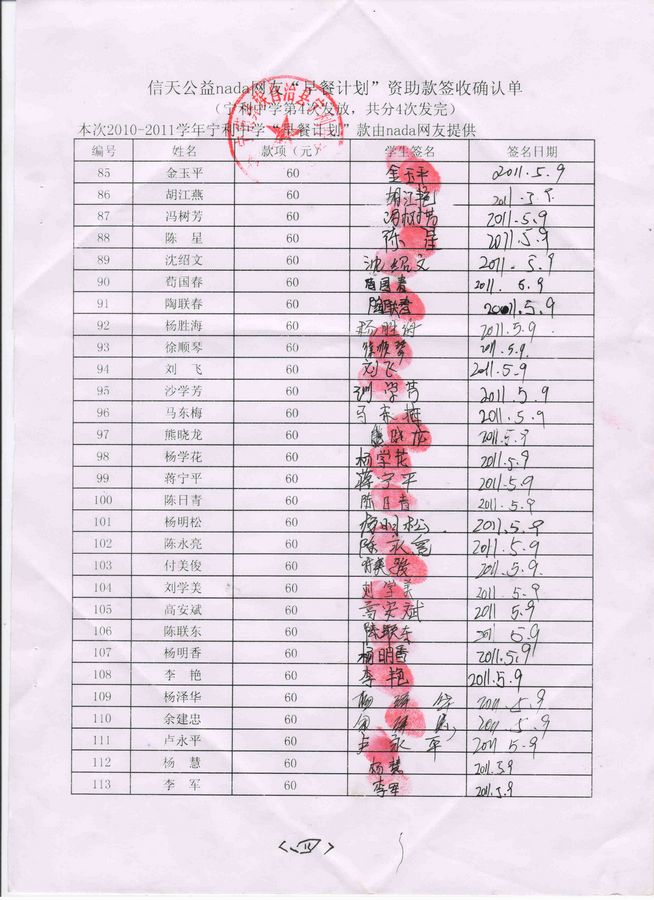 信天公益nada网友“早餐计划”资助款签收确认单
（宁利中学第4次发放，共分4次发完）
本次2010-2011学年宁利中学“早餐计划”款由nada网友提供
编号 姓名 款项（元） 学生签名 签名日期
85 金玉平 60 金玉平 2011.5.9
86 胡江燕 60 胡江艳 2011.5.9
87 冯树芳 60 冯树芳 2011.5.9
88 陈 星 60 陈 星 2011.5.9
89 沈绍文 60 沈绍文 2011.5.9
90 荀国春 60 荀国春 2011.5.9
91 陶联春 60 陶联春 2011.5.9
92 杨胜海 60 杨胜海 2011.5.9
93 徐顺琴 60 徐顺琴 2011.5.9.
94 刘 飞 60 刘飞 2011.5.9
95 沙学芳 60 学芳 2011.5.9
96 马东梅 60 马东梅 2011.5.9
97 熊晓龙 60 熊晓龙 2011.5.9
98 杨学花 60 杨学花 2011.5.9
99 蒋宁平 60 蒋宁平 2011.5.9
100 陈日青 60 陈日青 2011.5.9
101 杨明松 60 杨明松 2011.5.9
102 陈永亮 60 陈永亮 2011.5.9
103 付美俊 60 2011.5.9.
104 刘学美 60 刘学美 2011.5.9
105 高安斌 60 高安斌 2011.5.9
106 陈联东 60 陈联东 5.9
107 杨明香 60 杨明香 2011.5.9
108 李 艳 60 李艳 2011.5.9
109 杨泽华 60 2011.5.9
110 余建忠 60 2011.5.9
111 卢永平 60 卢永平 2011 5.9
112 杨 慧 60 杨慧 2011.5.9
113 李 军 60 李军 2011.5.9